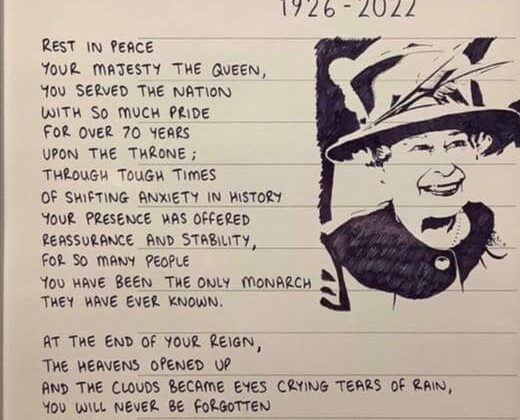 1926-2022
REST IN PEACE
YOUR MAJESTY THE QUEEN,
YOU SERVED THE NATION
WITH SO MUCH PRIDE
FOR OVER 70 YEARS
UPON THE THRONE;
THROUGH TOUGH TIMES
OF SHIFTING ANXIETY IN HISTORY
YOUR PRESENCE HAS OFFERED
REASSURANCE AND STABILITY,
FOR SO MANY PEOPLE
YOU HAVE BEEN THE ONLY MONARCH
THEY HAVE EVER KNOWN.
AT THE END OF YOUR REIGN,
THE HEAVENS OPENED UP
AND THE CLOUDS BECAME EYES CRYING TEARS OF RAIN,
YOU WILL NEVER BE FORGOTTEN